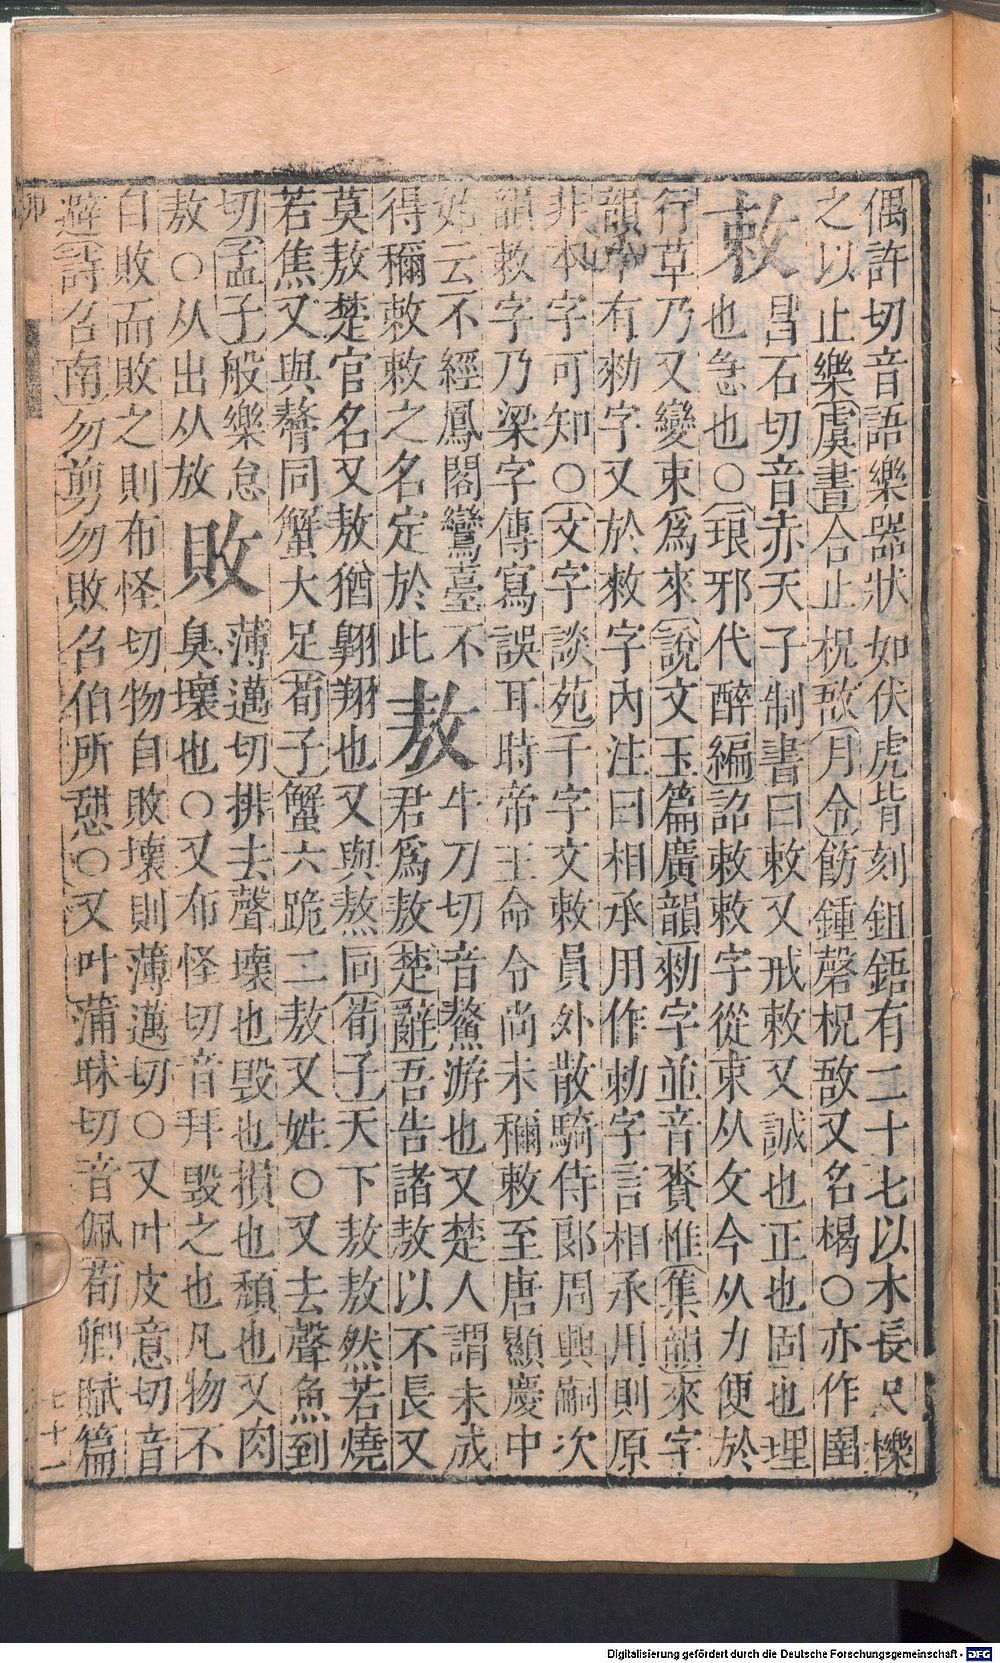 偶許切音語樂器狀如伏虎背刻鉏鋙有二十七以木長尺櫟
之以止樂虞書合止柷敔月令飭鍾磬柷敔又名楬○亦作圉
敕昌石切音赤天子制書曰敕又戒敕又誠也正也固也理
也急也○琅邪代醉編詔敕敕字從束从攵今从力便於
行草乃又變束爲來說文玉篇廣韻勑字並音賚惟集韻來字
韻本有勑字又於敕字內注曰相承用作勅字言相承用則原
非本字可知○文字談苑千字文敕員外散騎侍郎周興嗣次
韻敕字乃梁字傳寫誤耳時帝王命令尚未稱敕至唐顯慶中
始云不經鳳閣鸞臺不
得稱敕敕之名定於此敖牛刀切音鰲游也又楚人謂未成
君爲敖楚辭吾告諸敖以不長又
莫敖楚官名又敖猶翱翔也又與熬同荀子天下敖敖然若燒
若焦又與螯同蟹大足荀子蟹六跪二敖又姓○又去聲魚到
切孟子般樂怠
敖○从出从放敗薄邁切排去聲壞也毁也損也頹也又肉
臭壞也○又布怪切音拜毀之也凡物不
自敗而敗之則布怪切物自敗壞則薄邁切○又叶皮意切音
避詩召南勿剪勿敗召伯所憩○又叶蒲昧切音佩荀卿賦篇
卯
七十一
Digitalisierung gefördert durch die Deutsche Forschungsgemeinschaft - DFG